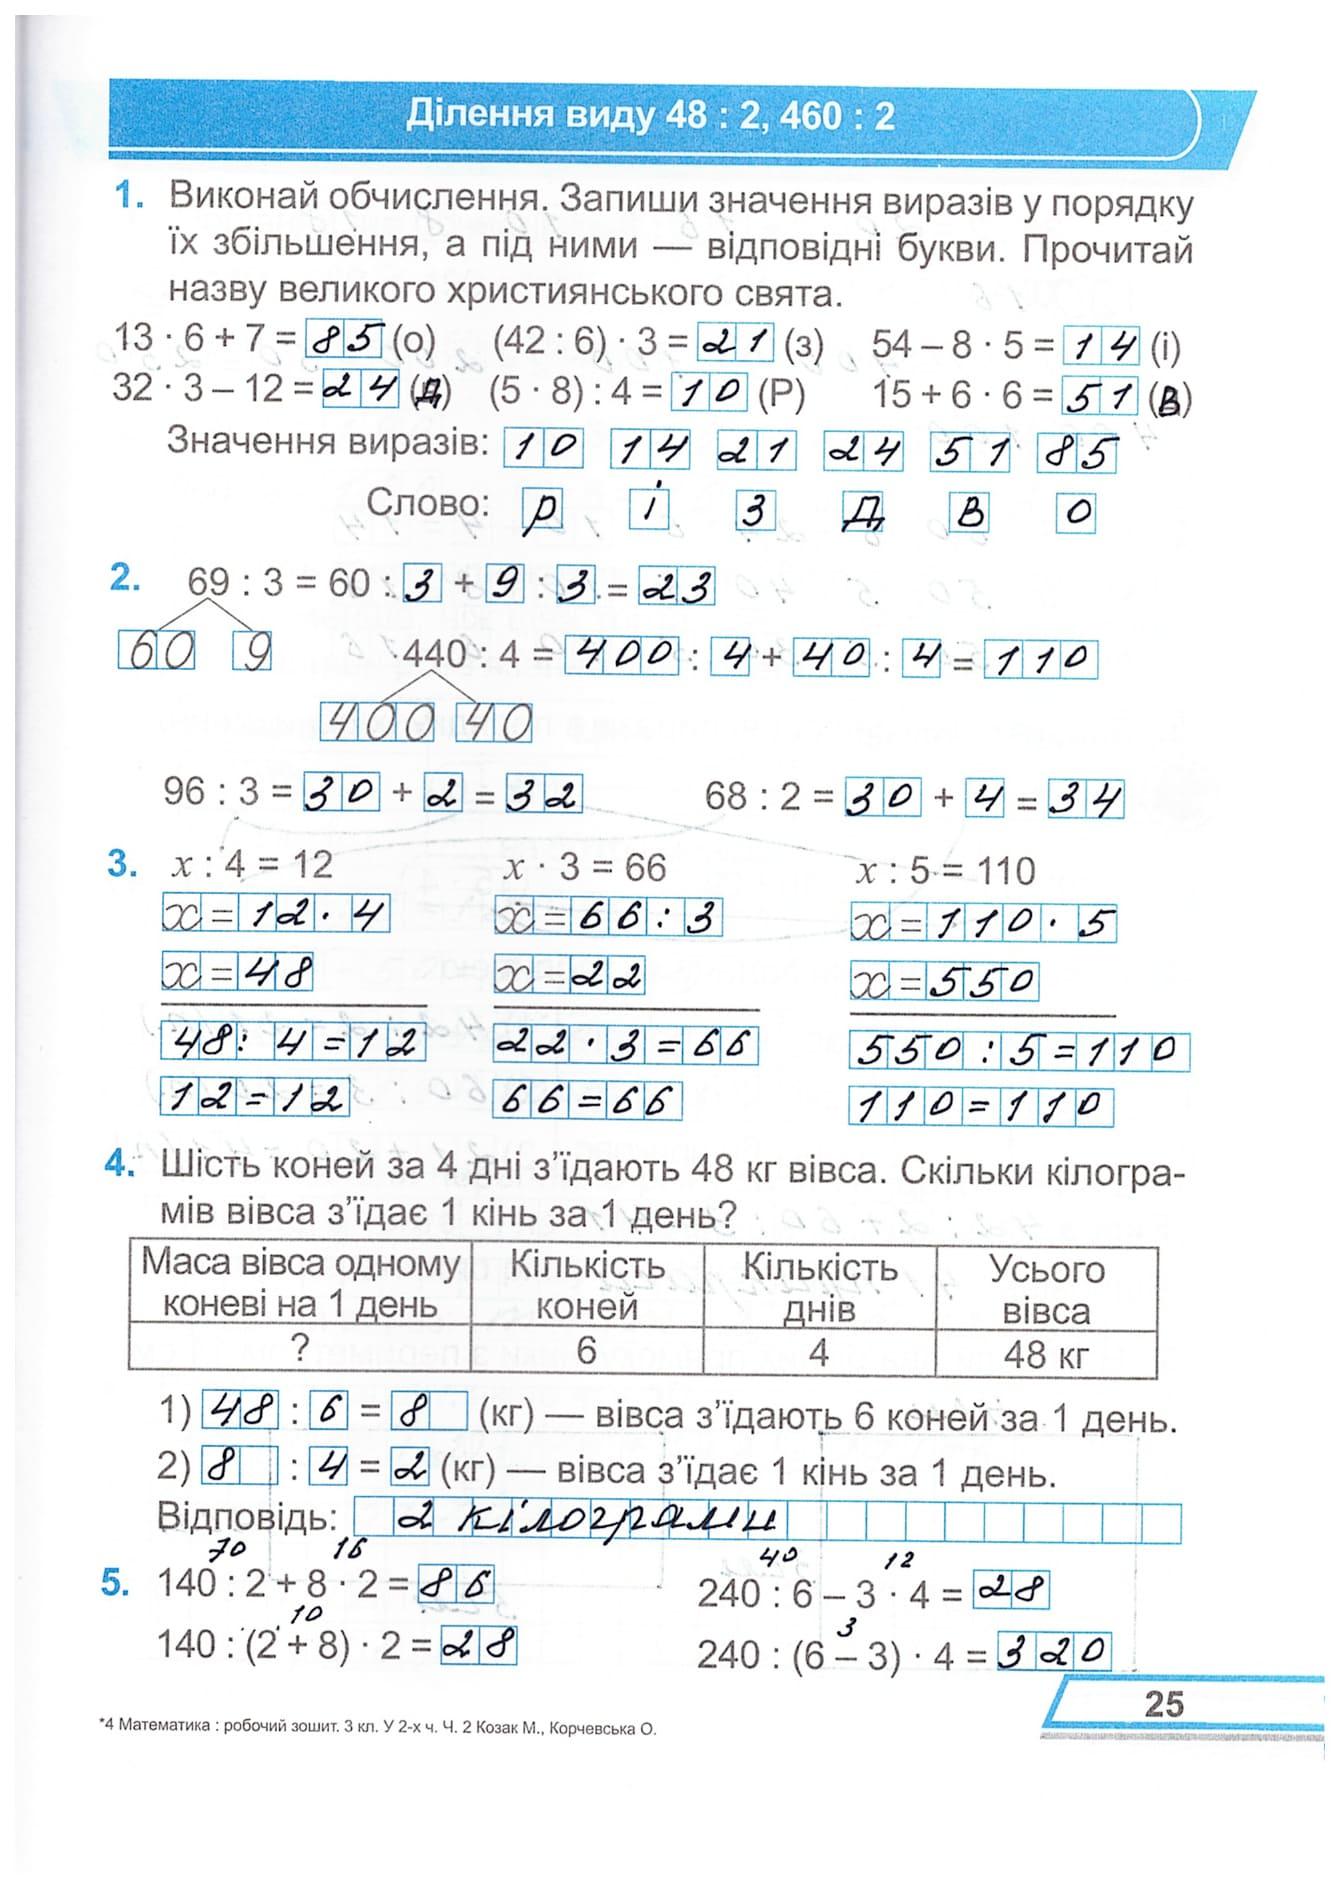 Ділення виду 48 : 2, 460 : 2
1. Виконай обчислення. Запиши значення виразів у порядку
їх збільшення, а під ними — відповідні букви. Прочитай
назву великого християнського свята.
13 · 6 + 7 = 85 (о) (42 : 6) · 3 = 21 (з) 54 – 8 · 5 = 14 (і)
32 · 3 – 12 = 24 (Д) (5 · 8) : 4 = 10 (Р) 15 + 6 · 6 = 51 (В)
Значення виразів: 10 14 21 24 51 85
Слово: Р і З Д В О
2. 69 : 3 = 60 : 3 + 9 : 3 = 23
60 9 440 : 4 = 400 : 4 + 40 : 4 = 110
400 40
96 : 3 = 30 + 2 = 32 68 : 2 = 30 + 4 = 34
3. x : 4 = 12 x · 3 = 66 x : 5 = 110
x = 12 · 4 x = 66 : 3 x = 110 · 5
x = 48 x = 22 x = 550
48 : 4 = 12 22 · 3 = 66 550 : 5 = 110
12 = 12 66 = 66 110 = 110
4. Шість коней за 4 дні з’їдають 48 кг вівса. Скільки кілогра-
мів вівса з’їдає 1 кінь за 1 день?
Маса вівса одному Кількість Кількість Усього
коневі на 1 день коней днів вівса
? 6 4 48 кг
1) 48 : 6 = 8 (кг) — вівса з’їдають 6 коней за 1 день.
2) 8 : 4 = 2 (кг) — вівса з’їдає 1 кінь за 1 день.
Відповідь: 2 кілограми
70 16 40 12
5. 140 : 2 + 8 · 2 = 86 240 : 6 – 3 · 4 = 28
10 3
140 : (2 + 8) · 2 = 28 240 : (6 – 3) · 4 = 320
25
*4 Математика : робочий зошит. 3 кл. У 2-х ч. Ч. 2 Козак М., Корчевська О.